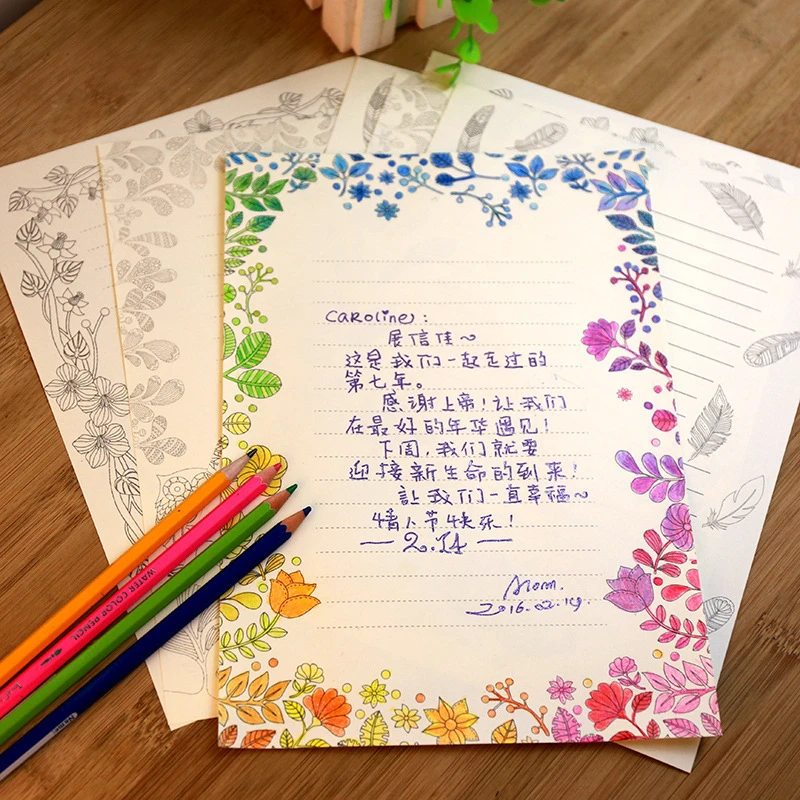 Caroline:
展信佳~
这是我们一起走过的
第七年。
感谢上帝!让我们
在最好的年华遇见!
下周,我们就要
迎接新生命的到来!
让我们一直幸福~
情人节快乐!
— 2.14 —
2016.02.14.
WATER COLOR PENCIL